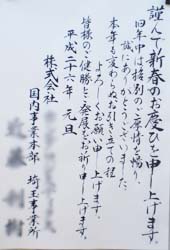 謹んで新春のお慶びを申し上げます。
旧年中は格別のご厚情を賜り、
誠にありがとうございました。
本年も変わらぬお引き立ての程
よろしくお願い申し上げます。
皆様のご健勝とご発展をお祈り申し上げます。
平成二六年 元旦
株式会社
国内事業本部 埼玉事業所